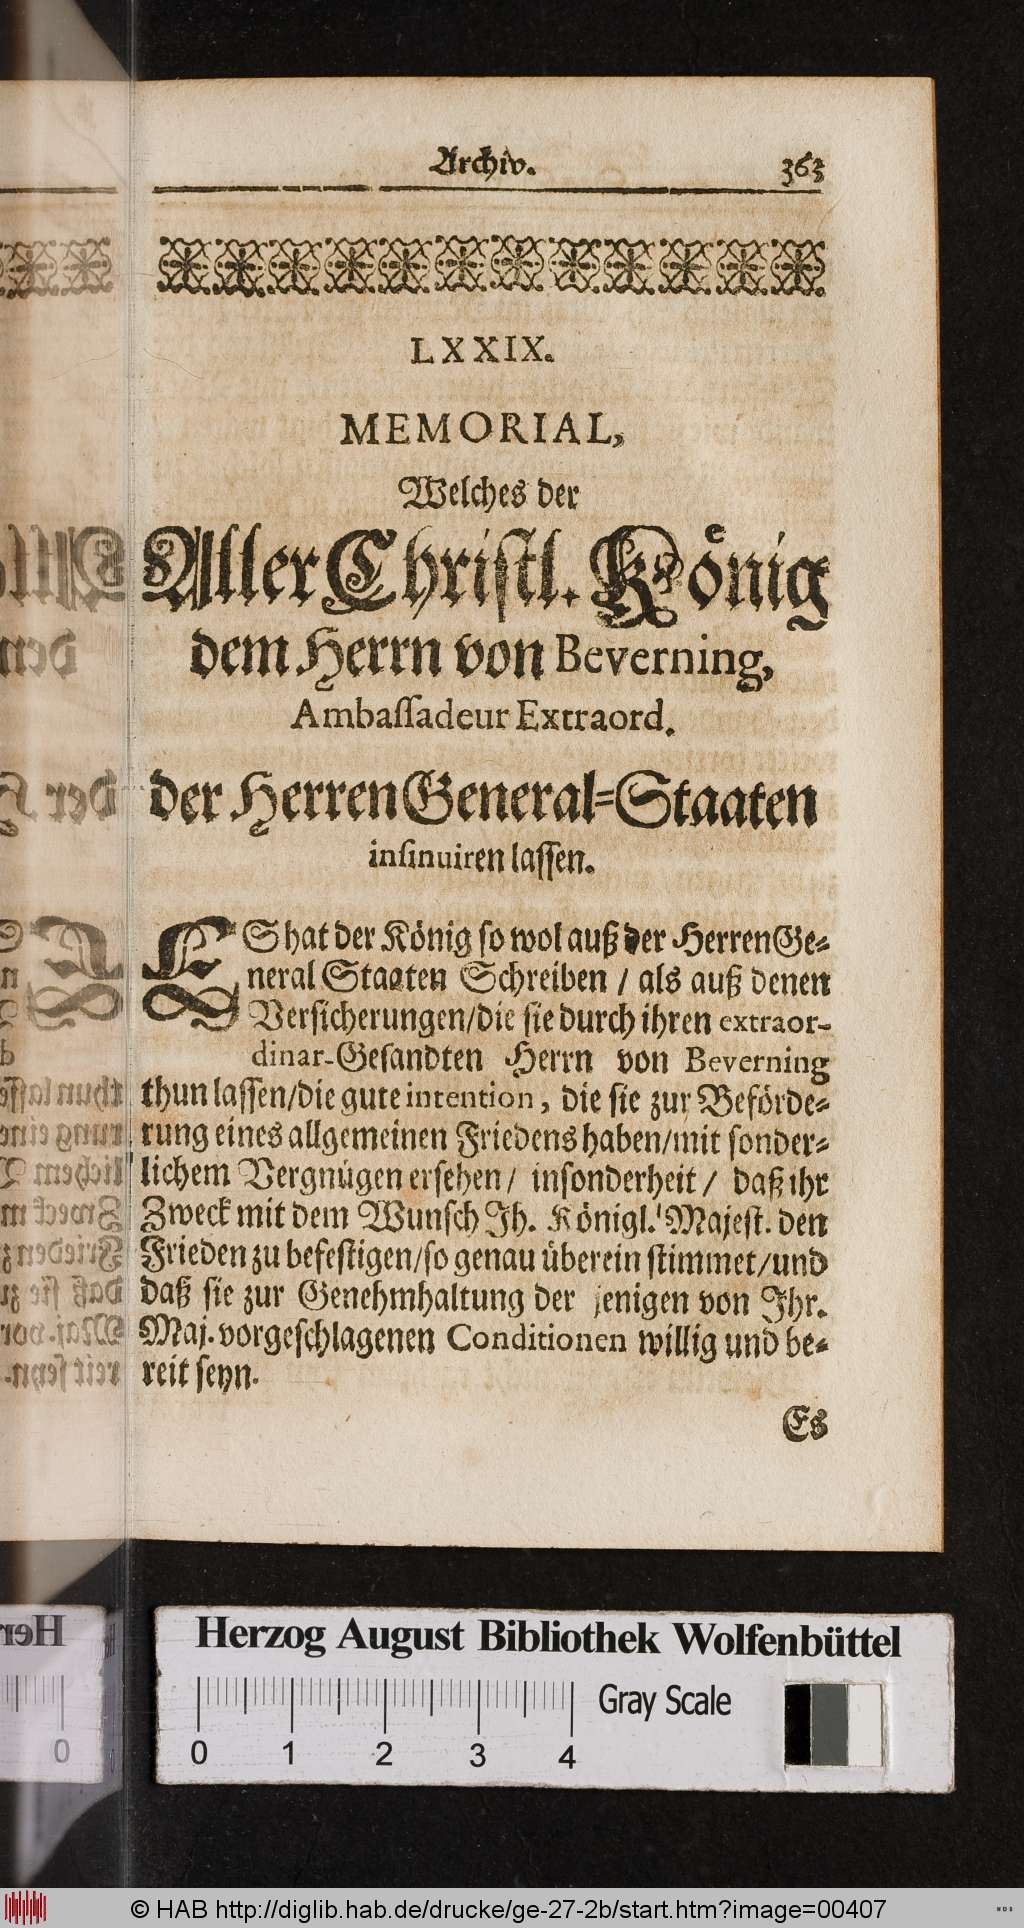 Archiv. 363
LXXIX.
MEMORIAL,
Welches der
Aller Christl. König
dem Herrn von Beverning,
Ambassadeur Extraord.
der Herren General-Staaten
insinuiren lassen.
ES hat der König so wol auß der Herren Ge-
neral Staaten Schreiben / als auß denen
Versicherungen/die sie durch ihren extraor-
dinar-Gesandten Herrn von Beverning
thun lassen/die gute intention, die sie zur Beförde-
rung eines allgemeinen Friedens haben/mit sonder-
lichem Vergnügen ersehen / insonderheit / daß ihr
Zweck mit dem Wunsch Ih. Königl. Majest. den
Frieden zu befestigen/so genau überein stimmet/und
daß sie zur Genehmhaltung der jenigen von Ihr.
Maj. vorgeschlagenen Conditionen willig und be-
reit seyn.
Es
Herzog August Bibliothek Wolfenbüttel
0 1 2 3 4 Gray Scale
© HAB http://diglib.hab.de/drucke/ge-27-2b/start.htm?image=00407